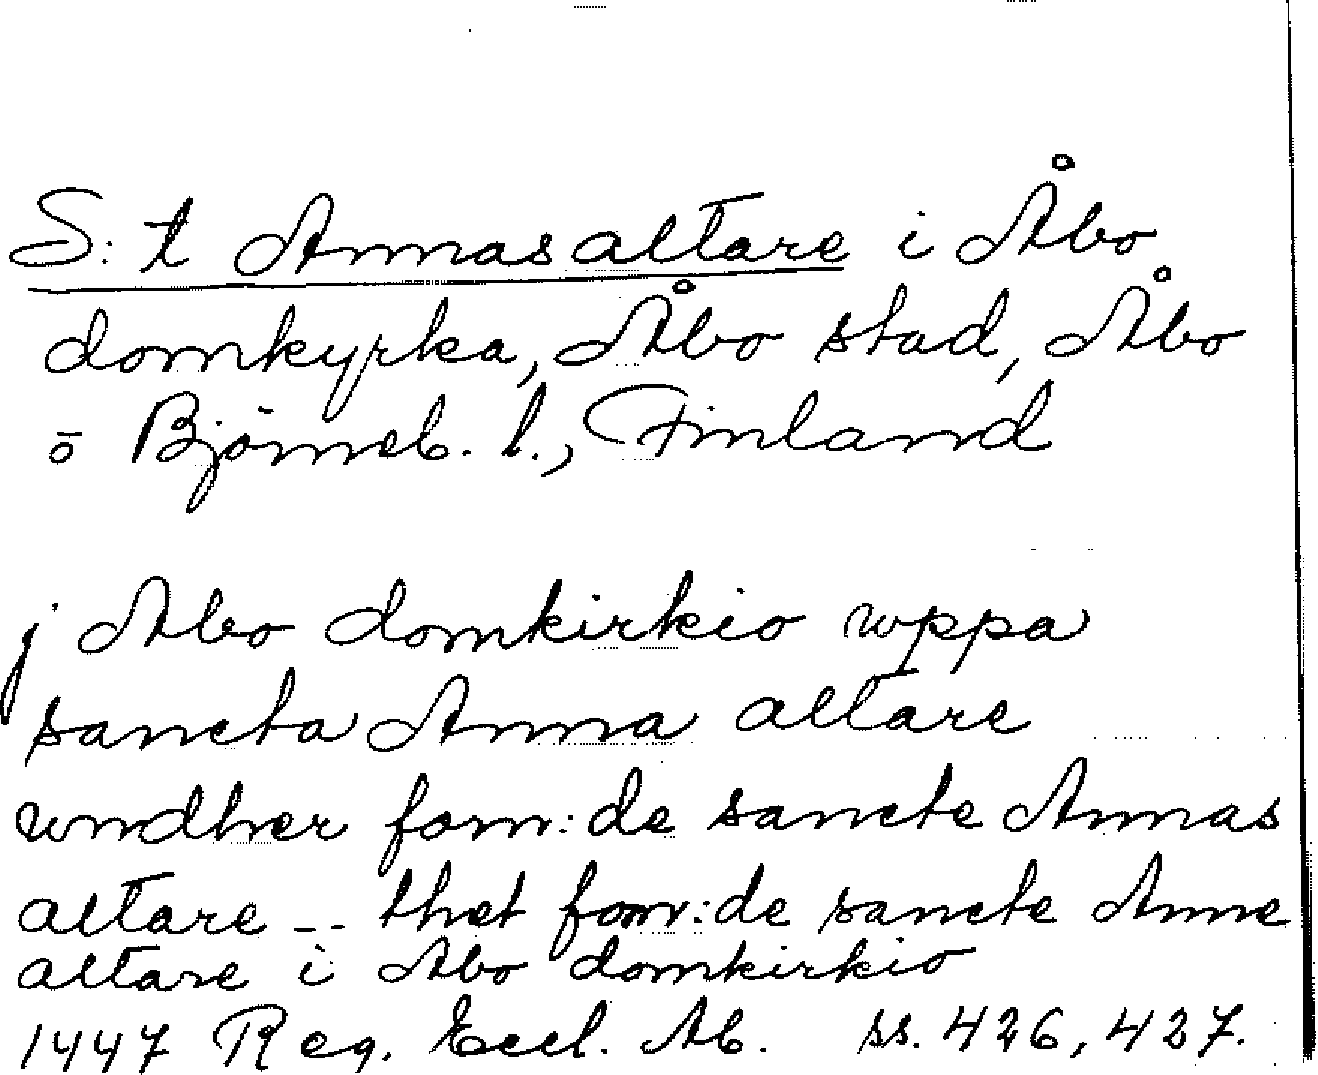 S:t Annas altare i Åbo
domkyrka, Åbo stad, Åbo
o Björneb. l., Finland
j Abo domkirkio wppa
sancta Anna altare
wndher forn:de sancte Annas
altare -- thet forn:de sancte Anne
altare i Abo domkirkio
1447 Reg. Eccl. Ab. ss. 426, 427.